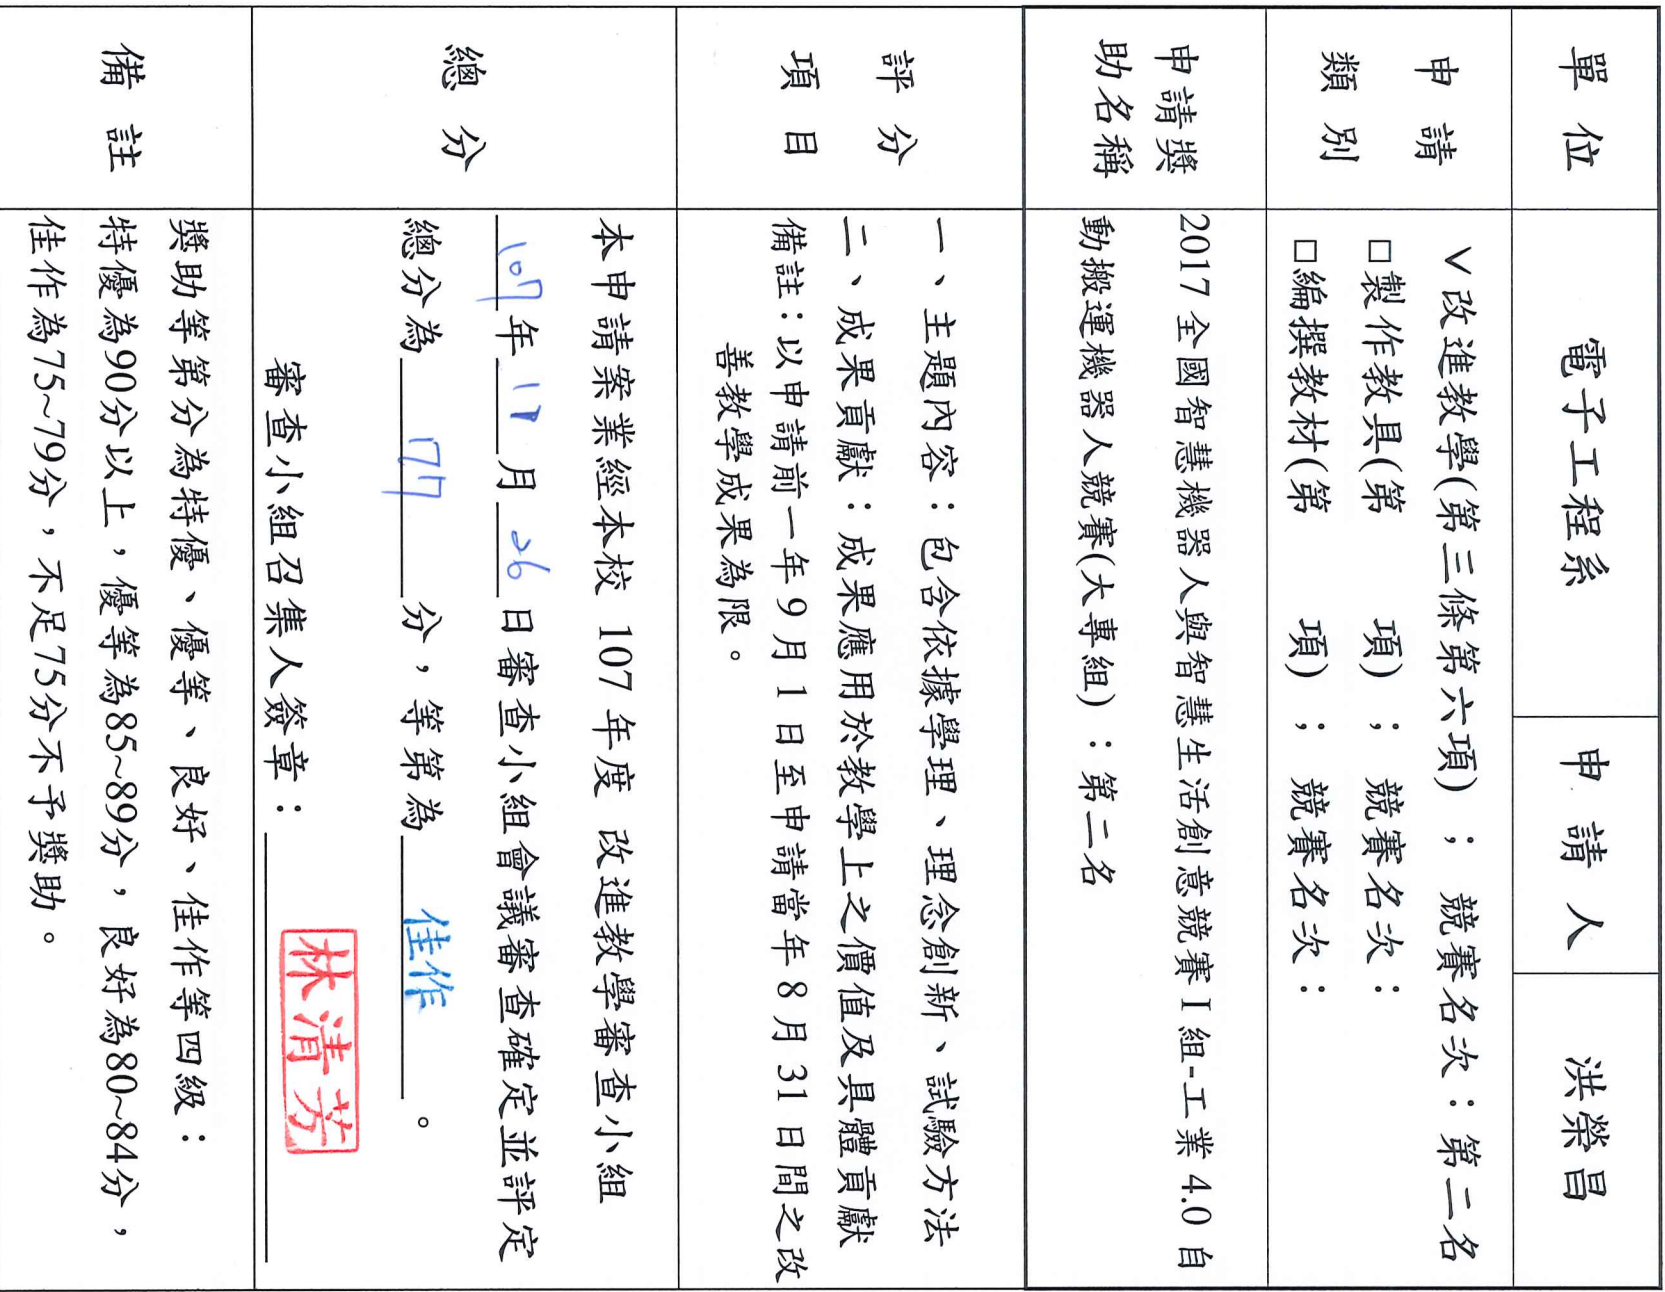 單位 電子工程系 申請人 洪榮昌
申請類別
V改進教學(第三條第六項)； 競賽名次：第二名
□製作教具(第 項)； 競賽名次：
□編撰教材(第 項)； 競賽名次：
申請獎助名稱
2017全國智慧機器人與智慧生活創意競賽I組-工業4.0自
動搬運機器人競賽(大專組)：第二名
評分項目
一、主題內容：包含依據學理、理念創新、試驗方法
二、成果貢獻：成果應用於教學上之價值及具體貢獻
備註：以申請前一年9月1日至申請當年8月31日間之改
善教學成果為限。
總分
本申請案業經本校 107年度 改進教學審查小組
107年11月26日審查小組會議審查確定並評定
總分為 77 分，等第為 佳作 。
審查小組召集人簽章：林清芳
備註
獎助等第分為特優、優等、良好、佳作等四級：
特優為90分以上，優等為85~89分，良好為80~84分，
佳作為75~79分，不足75分不予獎助。